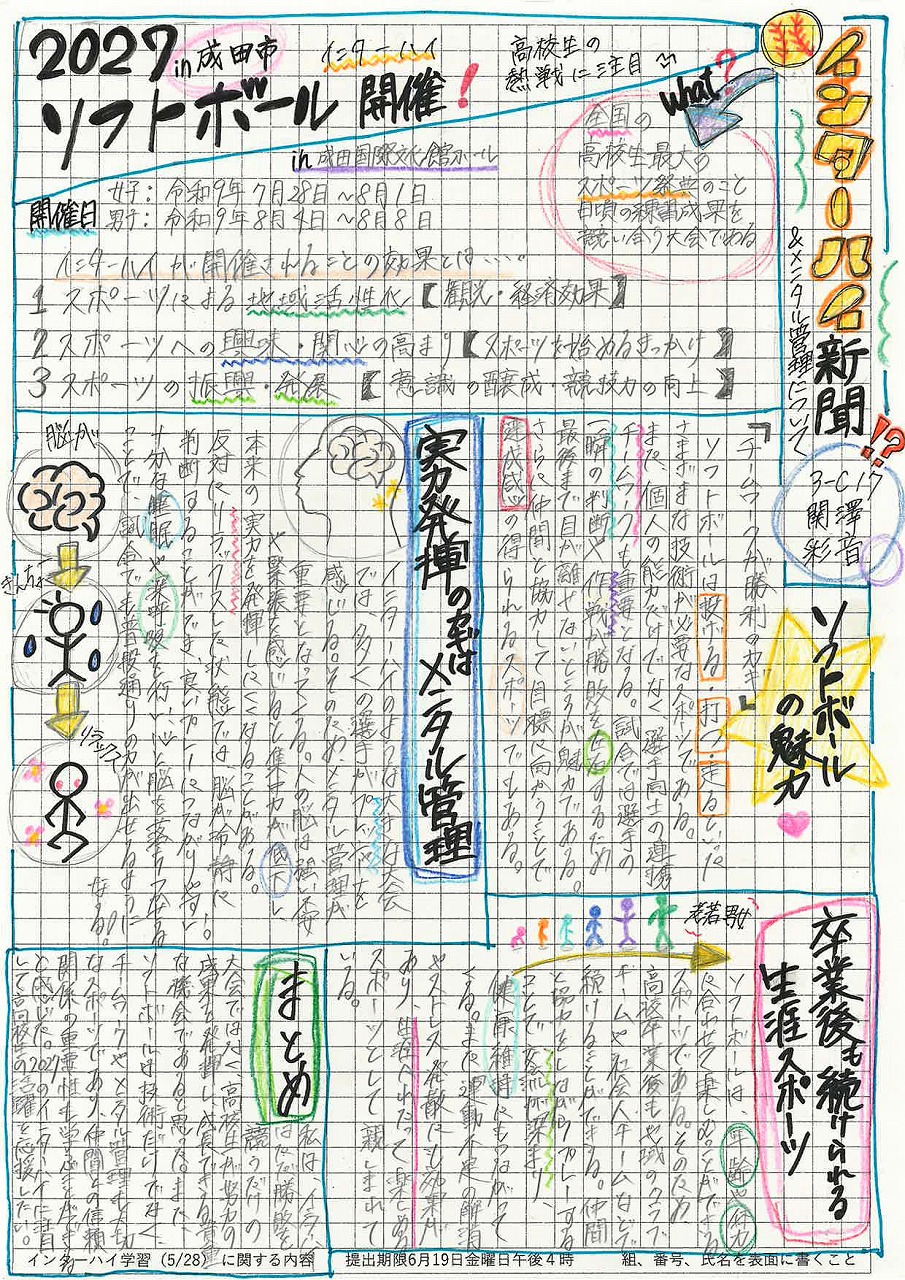 インターハイ新聞
&メンタル管理について
!?
3-C 17
関澤
彩音
2027 in 成田市
インターハイ
ソフトボール 開催!
高校生の
熱戦に注目
in 成田国際文化会館ホール
What?
全国の
高校生最大の
スポーツ祭典のこと
日頃の練習成果を
競い合う大会である
開催日
女子: 令和9年7月28日~8月1日
男子: 令和9年8月4日~8月8日
インターハイが開催されることの効果とは……
1 スポーツによる地域活性化【観光・経済効果】
2 スポーツへの興味・関心の高まり【スポーツを始めるきっかけ】
3 スポーツの振興・発展【意識の醸成・競技力の向上】
ソフトボール
の魅力
「チームワークが勝利のカギ」
ソフトボールは投げる・打つ・走るといった
さまざまな技術が必要なスポーツである。
また、個人の能力だけでなく、選手同士の連携
チームワークも重要となる。試合では選手の
一瞬の判断や作戦が勝敗を左右するため
最後まで目が離せないところが魅力である。
さらに仲間と協力して目標に向かうことで
達成感の得られるスポーツでもある。
実力発揮のカギは
メンタル管理
インターハイのような大きな大会
では、多くの選手がプレッシャーを
感じる。そのためメンタル管理が
重要となってくる。人の脳は強い不安
や緊張を感じると集中力が低下し
本来の実力を発揮しにくくなることがある。
反対にリラックスした状態では、脳が冷静に
判断することができ良いプレーにつながりやすい。
十分な睡眠や深呼吸を行い、心と脳を落ちつかせる
ことで、試合でも普段通りの力が出せるように
なる。
脳が
きんちょう
リラックス
卒業後も続けられる
生涯スポーツ
老若男女
ソフトボールは、年齢や体力
に合わせて楽しむことができる
スポーツである。そのため
高校卒業後も地域のクラブ
チームや社会人チームなどで
続けることができる。仲間
と協力しながらプレーする
ことで交流が深まり
健康維持にもつながって
くる。また、運動不足の解消
やストレス発散にも効果が
あり、生涯にわたって楽しめる
スポーツとして親しまれて
いる。
まとめ
私は、インターハイ
はただ勝敗を
競うだけの
大会ではなく、高校生が努力の
成果を発揮し、成長できる貴重
な機会であると思った。また、
ソフトボールは技術だけでなく、
チームワークやメンタル管理も大切
なスポーツであり、仲間との信頼
関係の重要性も学ぶことができる
と感じた。2027のインターハイに注目
して高校生の活躍を応援したい。
インターハイ学習(5/28)に関する内容
提出期限6月19日金曜日午後4時
組、番号、氏名を表面に書くこと